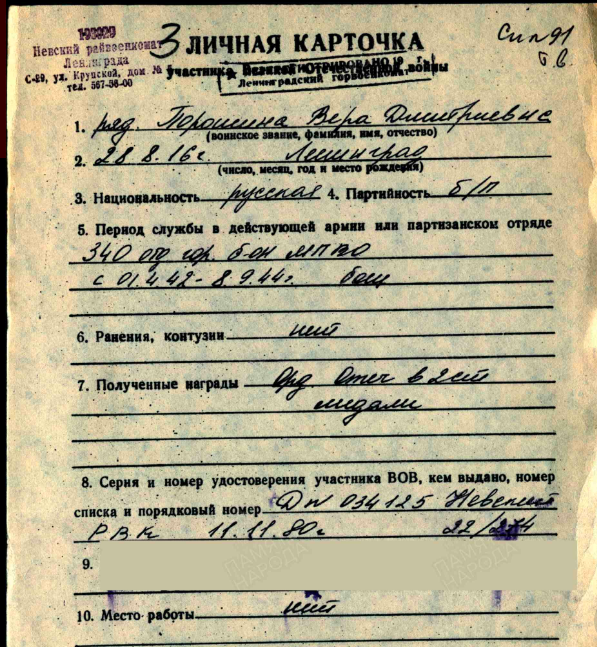 193929
Невский райвоенкомат
Ленинграда
С-29, ул. Крупской, дом №
тел. 567-56-00
3
ЛИЧНАЯ КАРТОЧКА
участника Великой Отечественной войны
Ленинградский горвоенкомат
1. ряд. Порошина Вера Дмитриевна
(воинское звание, фамилия, имя, отчество)
2. 28.8.16г. Ленинград
(число, месяц, год и место рождения)
3. Национальность русская 4. Партийность б/п
5. Период службы в действующей армии или партизанском отряде
340 отд гор. б-он МПВО
с 01.4.42 - 8.9.44г. боец
6. Ранения, контузии нет
7. Полученные награды Орд. Отеч в 2 ст
медали
8. Серия и номер удостоверения участника ВОВ, кем выдано, номер
списка и порядковый номер 034125 Невский
РВК 11.11.80г 22/
9.
ПАМЯТЬ НАРОДА
ПАМЯТЬ НАРОДА
10. Место работы нет